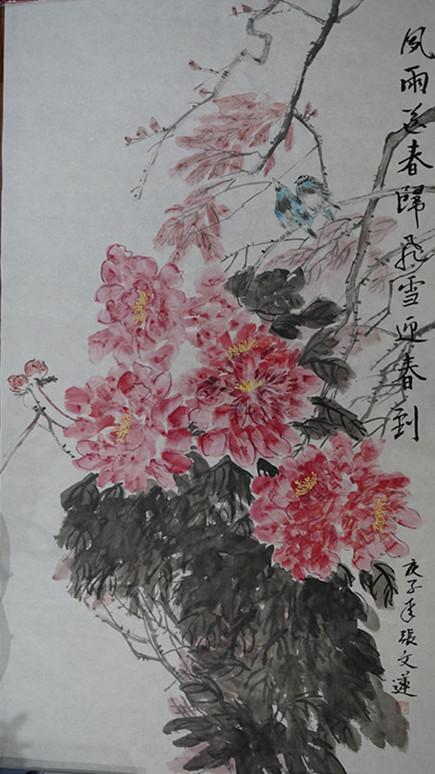 風雨送春歸飛雪迎春到
庚子年張文蓮